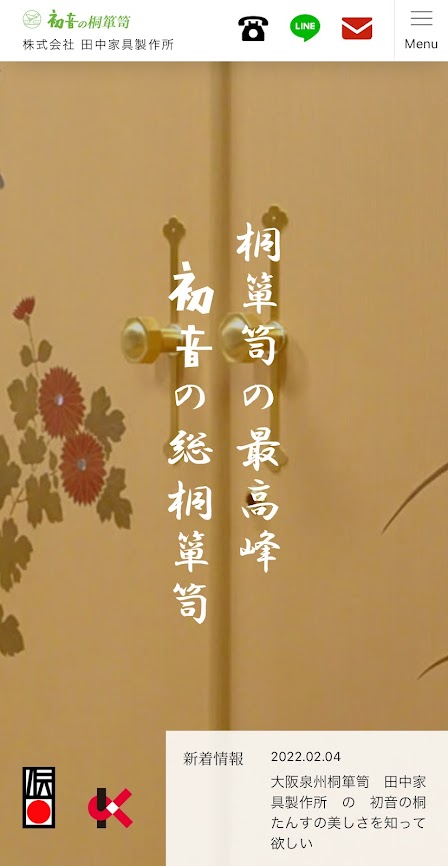 初音の桐箪笥
株式会社 田中家具製作所
LINE
Menu
桐箪笥の最高峰
初音の総桐箪笥
伝
新着情報
2022.02.04
大阪泉州桐箪笥　田中家
具製作所　の　初音の桐
たんすの美しさを知って
欲しい